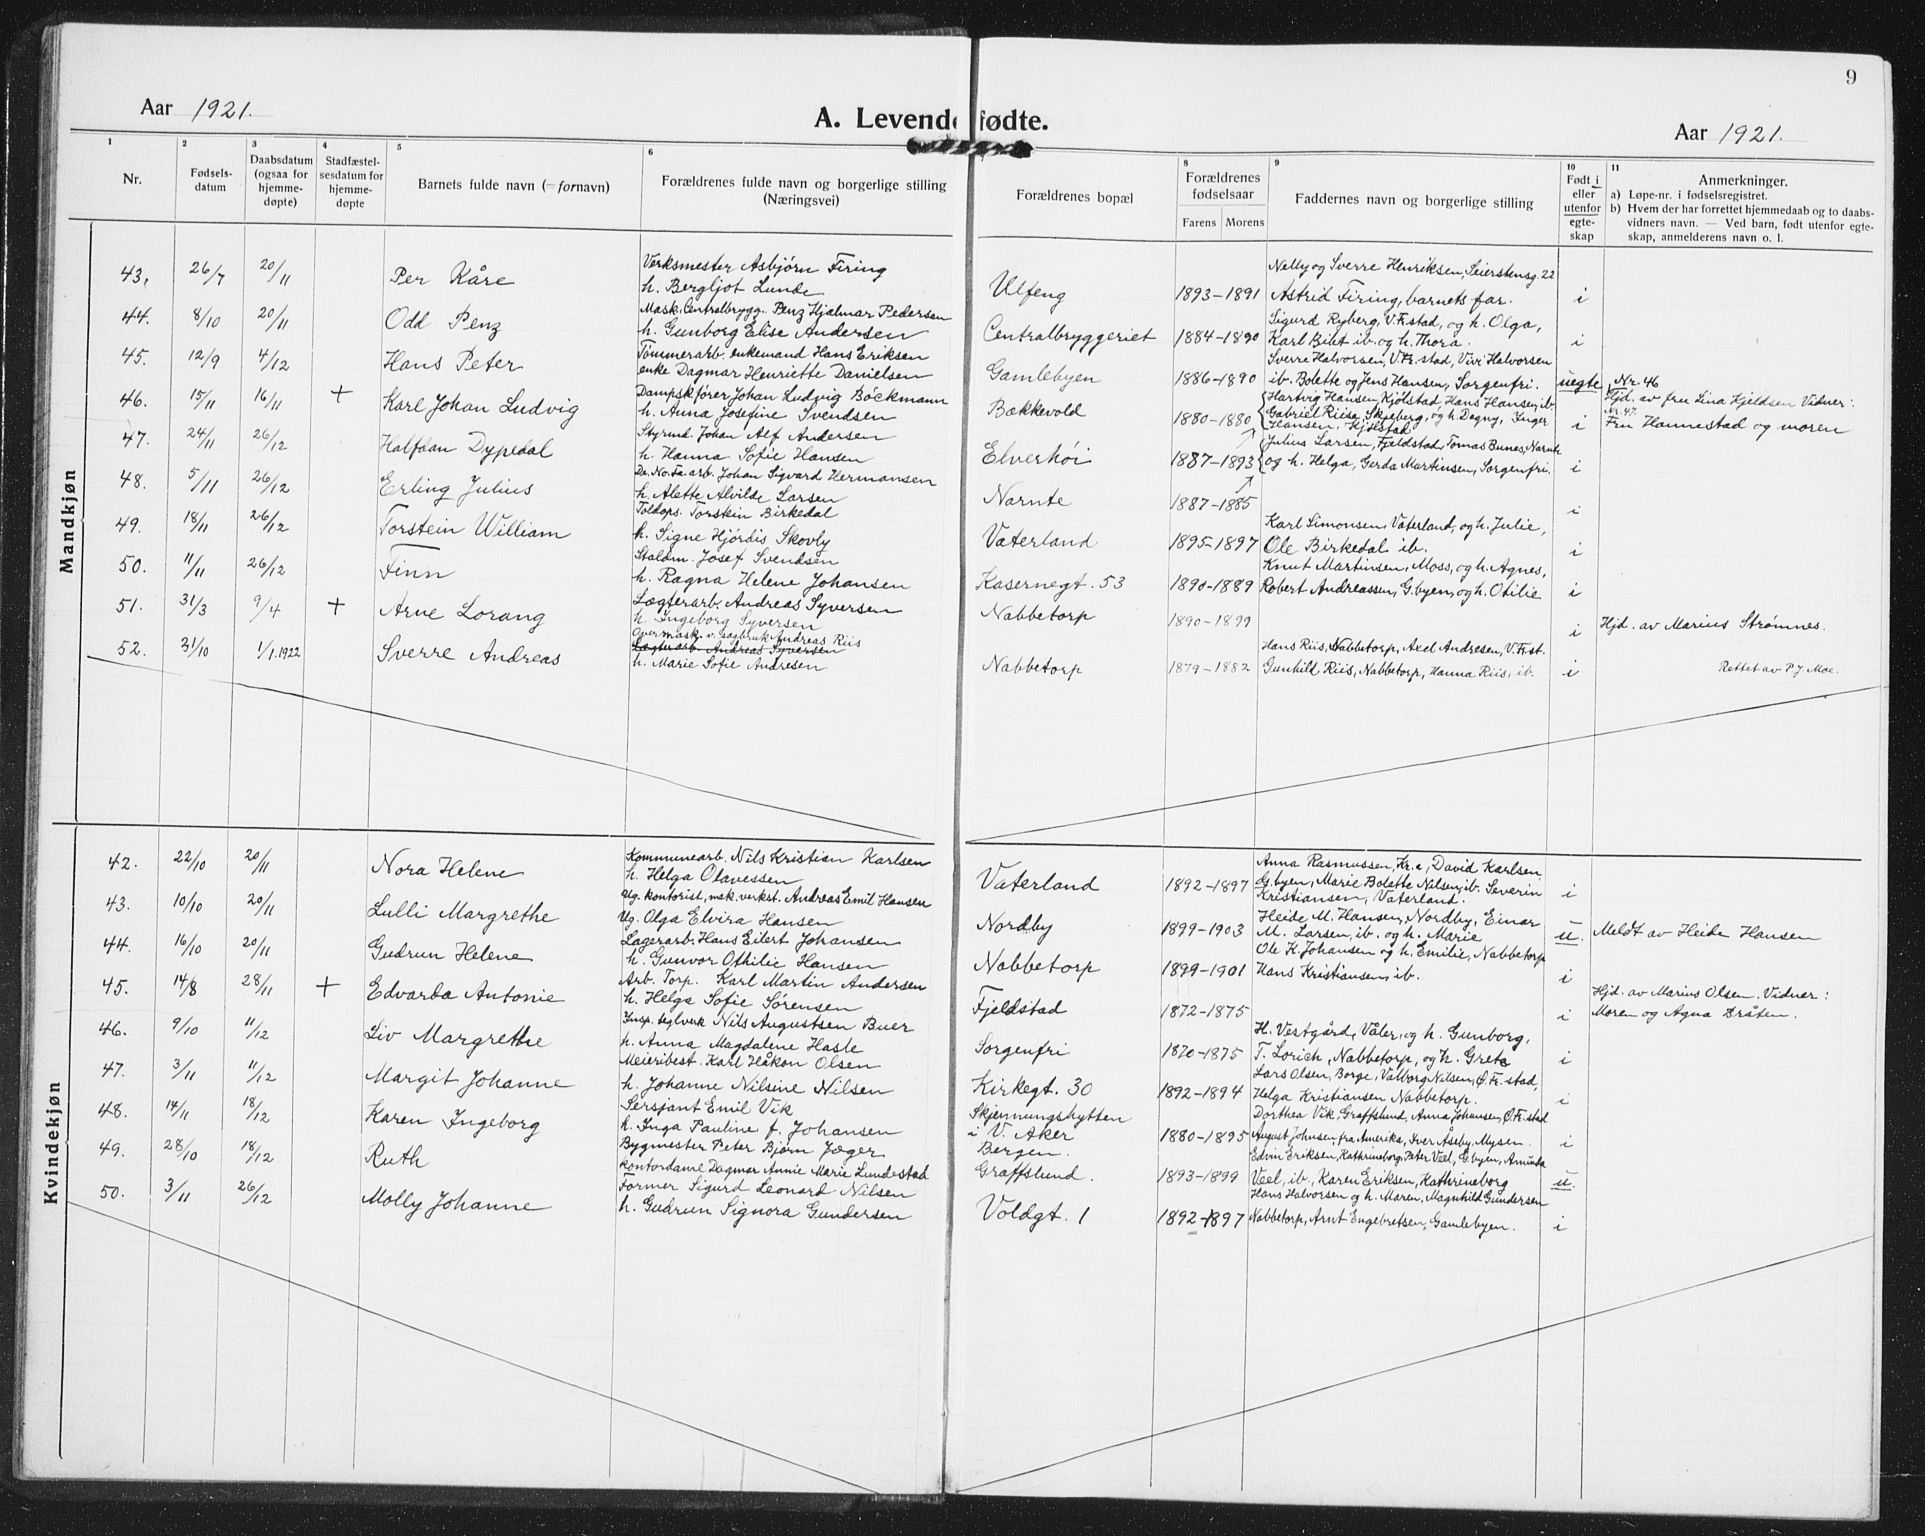 9
Aar 1921.
A. Levende fødte.
Aar 1921.
1 Nr.
2 Fødselsdatum
3 Daabsdatum (ogsaa for hjemmedøpte)
4 Stadfæstelsesdatum for hjemmedøpte
5 Barnets fulde navn (= fornavn)
6 Forældrenes fulde navn og borgerlige stilling (Næringsvei)
Forældrenes bopæl
8 Forældrenes fødselsaar
Farens Morens
9 Faddernes navn og borgerlige stilling
10 Født i eller utenfor egteskap
11 Anmerkninger.
a) Løpe-nr. i fødselsregistret.
b) Hvem der har forrettet hjemmedaab og to daabs-
vidners navn. — Ved barn, født utenfor egte-
skap, anmelderens navn o. l.
Mandkjøn
43. 26/7 20/11 Per Kåre
Verksmester Asbjørn Firing
h. Bergljot Lunde
Ulfeng 1893-1891
Nelly og Sverre Henriksen, Seierstensg. 22
Astrid Firing, barnets far. i
44. 8/10 20/11 Odd Penz
Mask. Centralbrygg. Penz Hjalmar Pedersen
h. Gunborg Elise Andersen
Centralbryggeriet 1884-1890
Sigurd Ryberg, V. Fr.stad, og h. Olga,
Karl Bilet ib. og h. Thora. i
45. 12/9 4/12 Hans Peter
Tømmerarb. enkemand Hans Eriksen
enke Dagmar Henriette Danielsen
Gamlebyen 1886-1890
Sverre Halvorsen, V. Fr. stad, Vivi Halvorsen
ib. Bolette og Jens Hansen, Sorgenfri. uegte
46. 15/11 16/11 + Karl Johan Ludvig
Dampskfører Johan Ludvig Böckmann
h. Anna Josefine Svendsen
Bækkevold 1880-1880
Hartvig Hansen, Kjølstad, Hans Hansen, ib.
Gabriel Riise, Skjeberg, og h. Dagny, Inger
Hansen, Kjølstad i
Nr. 46
Hjd. av fru Lina Kjeldsen Vidner:
Nr. 47.
Fru Hannestad og moren
47. 24/11 26/12 Halfdan Dypedal
Styrmd. Johan Alf Andersen
h. Hanna Sofie Hansen
Elverhöi 1887-1893
Julius Larsen, Fjeldstad, Tomas Bunes, Narnte
og h. Helga, Gerda Martinsen, Sorgenfri. i
48. 5/11 26/12 Erling Julius
De. No. Fa. arb. Johan Sigvard Hermansen
h. Alette Alvilde Larsen
Narnte 1887-1885 i
49. 18/11 26/12 Torstein William
Toldops. Torstein Birkedal
h. Signe Hjördis Skovly
Vaterland 1895-1897
Karl Simonsen, Vaterland, og h. Julie,
Ole Birkedal ib. i
50. 11/11 26/12 Finn
Staldm. Josef Svendsen
h. Ragna Helene Johansen
Kasernegt. 53 1890-1889
Knut Martinsen, Moss, og h. Agnes,
Robert Andreassen, G.byen, og h. Otilie i
51. 31/3 9/4 + Arne Lorang
Lægterarb. Andreas Syversen
h. Ingeborg Syversen
Nabbetorp 1890-1899 i
Hjd. av Marius Strømnes.
52. 31/10 1/1.1922 Sverre Andreas
Overmask. v. sagbruk Andreas Riis
Lægterarb. Andreas Syversen
h. Marie Sofie Andresen
Nabbetorp 1879-1882
Hans Riis, Nabbetorp, Axel Andresen, V. Fr.st.
Gunhild Riis, Nabbetorp, Hanna Riis, ib. i
Rettet av P J Moe.
Kvindekjøn
42. 22/10 20/11 Nora Helene
Kommunearb. Nils Kristian Karlsen
h. Helga Olavessen
Vaterland 1892-1897
Anna Rasmussen, Kr.a, David Karlsen
G.byen, Marie Bolette Nilsen, ib. Severin
Kristiansen, Vaterland. i
43. 10/10 20/11 Lulli Margrethe
Ug. kontorist, mek. verkst. Andreas Emil Hansen
Ug. Olga Elvira Hansen
Nordby 1899-1903
Heide M. Hansen, Nordby, Einar
M. Larsen, ib. og h. Marie u.
Meldt av Heide Hansen
44. 16/10 20/11 Gudrun Helene
Lagerarb. Hans Eilert Johansen
h. Gunvor Othilie Hansen
Nabbetorp 1899-1901
Ole K. Johansen og h. Emilie, Nabbetorp
Hans Kristiansen, ib. i
45. 14/8 28/11 + Edvarda Antonie
Arb. Torp. Karl Martin Andersen
h. Helga Sofie Sørensen
Fjeldstad 1872-1875 i
Hjd. av Marius Olsen. Vidner:
Moren og Agna Bråten.
46. 9/10 11/12 Liv Margrethe
Insp. teglverk Nils Augustsen Buer
h. Anna Magdalene Hasle
Sorgenfri 1870-1875
H. Vestgård, Våler, og h. Gunborg,
T. Lorich, Nabbetorp, og h. Grete i
47. 3/11 11/12 Margit Johanne
Meieribest. Karl Håkon Olsen
h. Johanne Nilsine Nilsen
Kirkegt. 30 1892-1894
Lars Olsen, Borge, Valborg Nilsen, Ø. Fr. stad,
Helga Kristiansen Nabbetorp. i
48. 14/11 18/12 Karen Ingeborg
Sersjant Emil Vik
h. Inga Pauline f. Johansen
Skjennungshytten
i V. Aker 1880-1895
Dorthea Vik, Graffslund, Anna Johansen, Ø. Fr.stad
August Johnsen fra Amerika, Iver Åseby, Mysen. i
49. 28/10 18/12 Ruth
Bygmester Peter Bjørn Jæger
Kontordame Dagmar Annie Marie Lundestad
Bergen.
Graffslund. 1893-1899
Edvin Eriksen, Kathrineborg, Peter Veel, G.byen, Amunda
Veel, ib., Karen Eriksen, Kathrineborg u.
50. 3/11 26/12 Molly Johanne
Former Sigurd Leonard Nilsen
h. Gudrun Signora Gundersen
Voldgt. 1 1892-1897
Hans Halvorsen og h. Maren, Magnhild Gundersen
Nabbetorp, Arnt Engebretsen, Gamlebyen. i